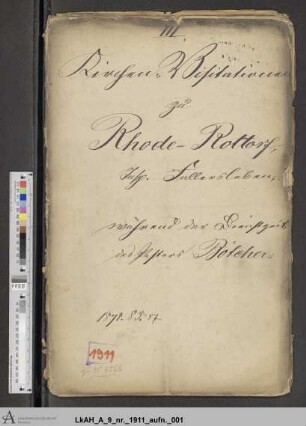 III.
Kirchen-Visitationen
zu
Rhode-Rottorf,
Insp. Fallersleben,
während der Dienstzeit
des Pastors Bölcher.
1878. 82. 87.
1911
LkAH_A_9_nr._1911_aufn._001